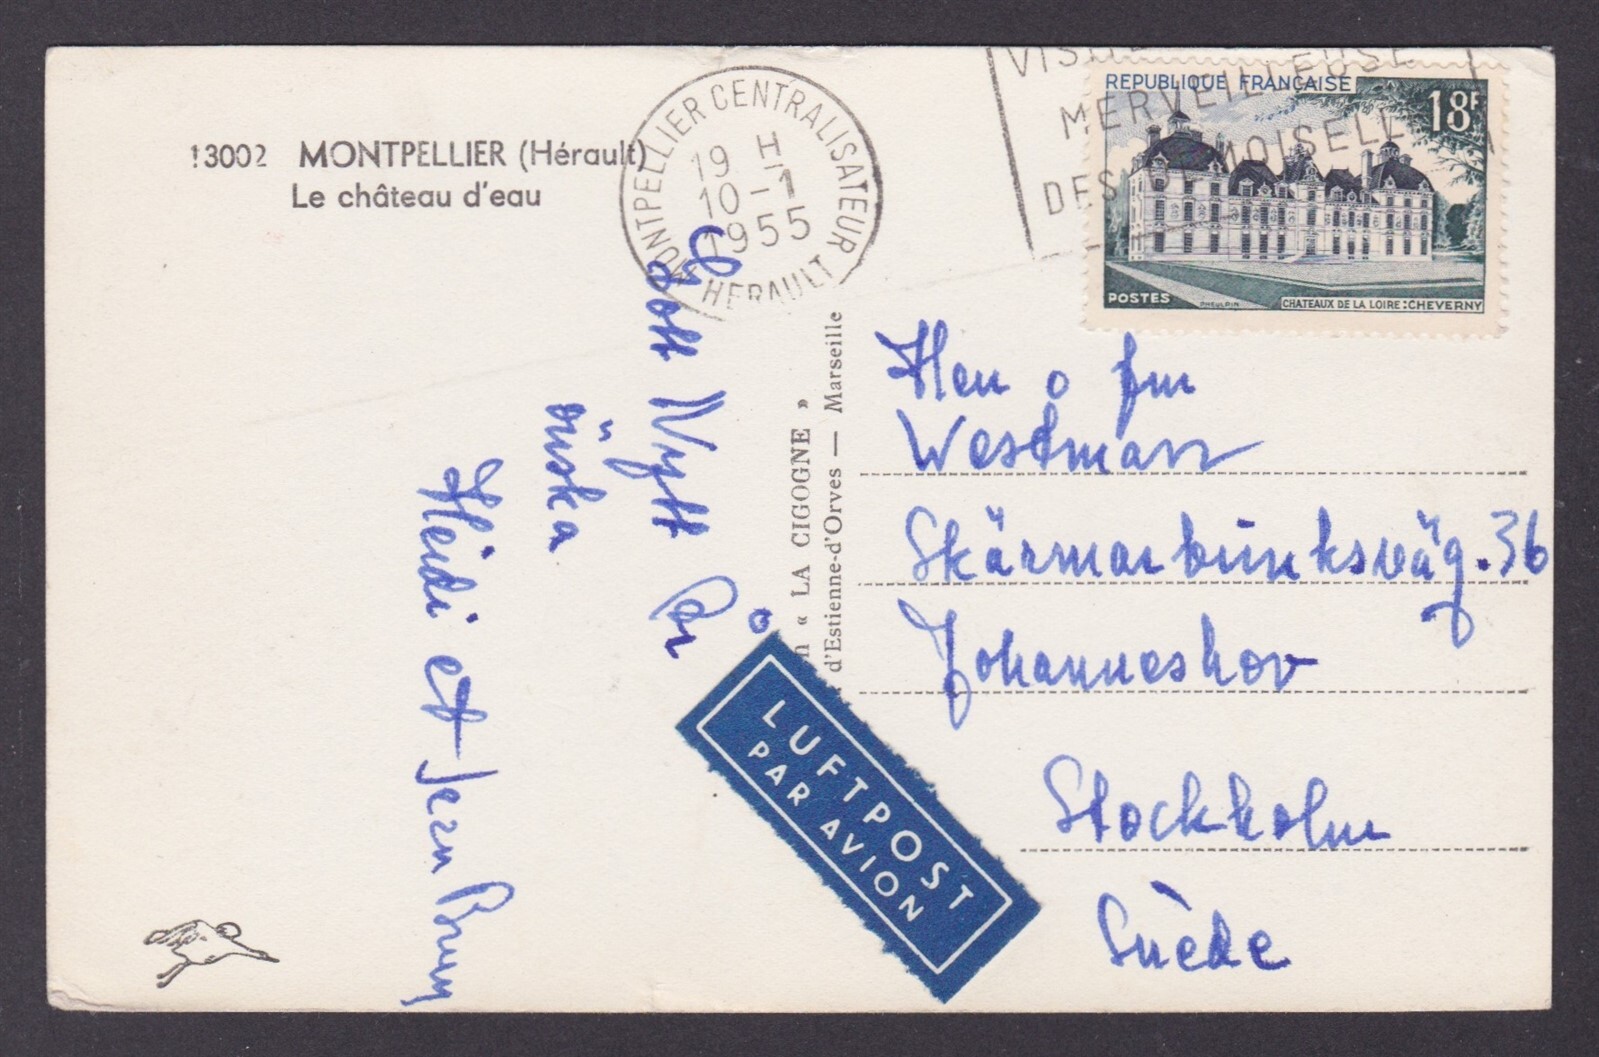 13002 MONTPELLIER (Hérault)
Le château d'eau
MONTPELLIER CENTRALISATEUR
19 H
10-1
1955
HERAULT
MERVEILLEUSE
DES DEMOISELL
REPUBLIQUE FRANÇAISE
18F
POSTES
CHATEAUX DE LA LOIRE: CHEVERNY
Gott Nytt År
önska
Heidi et Jean Brun
« LA CIGOGNE »
d'Estienne-d'Orves — Marseille
LUFTPOST
PAR AVION
Herr o fru
Westman
Skärmarbrinksväg. 36
Johanneshov
Stockholm
Suède